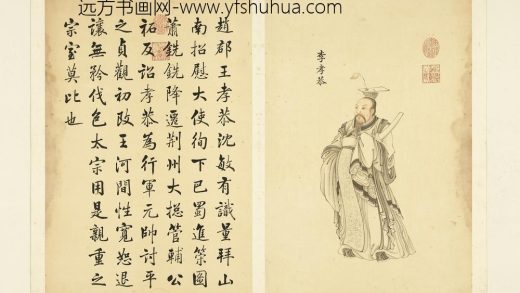 远方书画网-www.yfshuhua.com
李孝恭
趙郡王孝恭沈敏有識量拜山
南招慰大使徇下巴蜀進策圖
蕭銑銑降遷荆州大摠管輔公
祏反詔孝恭為行軍元帥討平
之貞觀初改王河間性寬恕退
讓無矜伐色太宗用是親重之
宗室莫比也